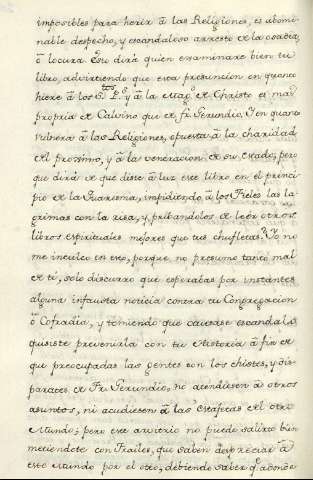 imposibles para herir â las Religiones, es abomi-
nable despecho, y escandaloso arresto de la osadia,
ô locura. Esto dirá quien examinare bien tu
libro, advirtiendo que esta presuncion en quanto
hiere â los S.tos P.s y â la Mag.d de Christo es mas
propria de Calvino que de fr. Gerundio, Y en quanto
vulnera â las Religiones, opuesta â la charidad
del proximo, y â la veneracion de su estado; pero
que dirá de que diste â luz este libro en el princi-
pio de la Quaresma, impidiendo â los Fieles las la-
grimas con la risa, y pribandolos de leer otros
libros espirituales mejores que tus chufletas? Yo no
me inculco en esto, porque no presumo tanto mal
de ti, solo discurro que esperabas por instantes
alguna infausta noticia contra tu Congregacion
ô Cofradia, y temiendo que causase escandalo
quisiste prevenirla con tu Historia â fin de
que preocupadas las gentes con los chistes, y dis-
parates de Fr. Gerundio, no atendiesen â otros
asuntos, ni acudiesen â las estafetas del otro
Mundo; pero este arvitrio no puede salirte bien
metiendote con Frailes, que saben despreciar â
este Mundo por el otro, debiendo saber q.e adonde